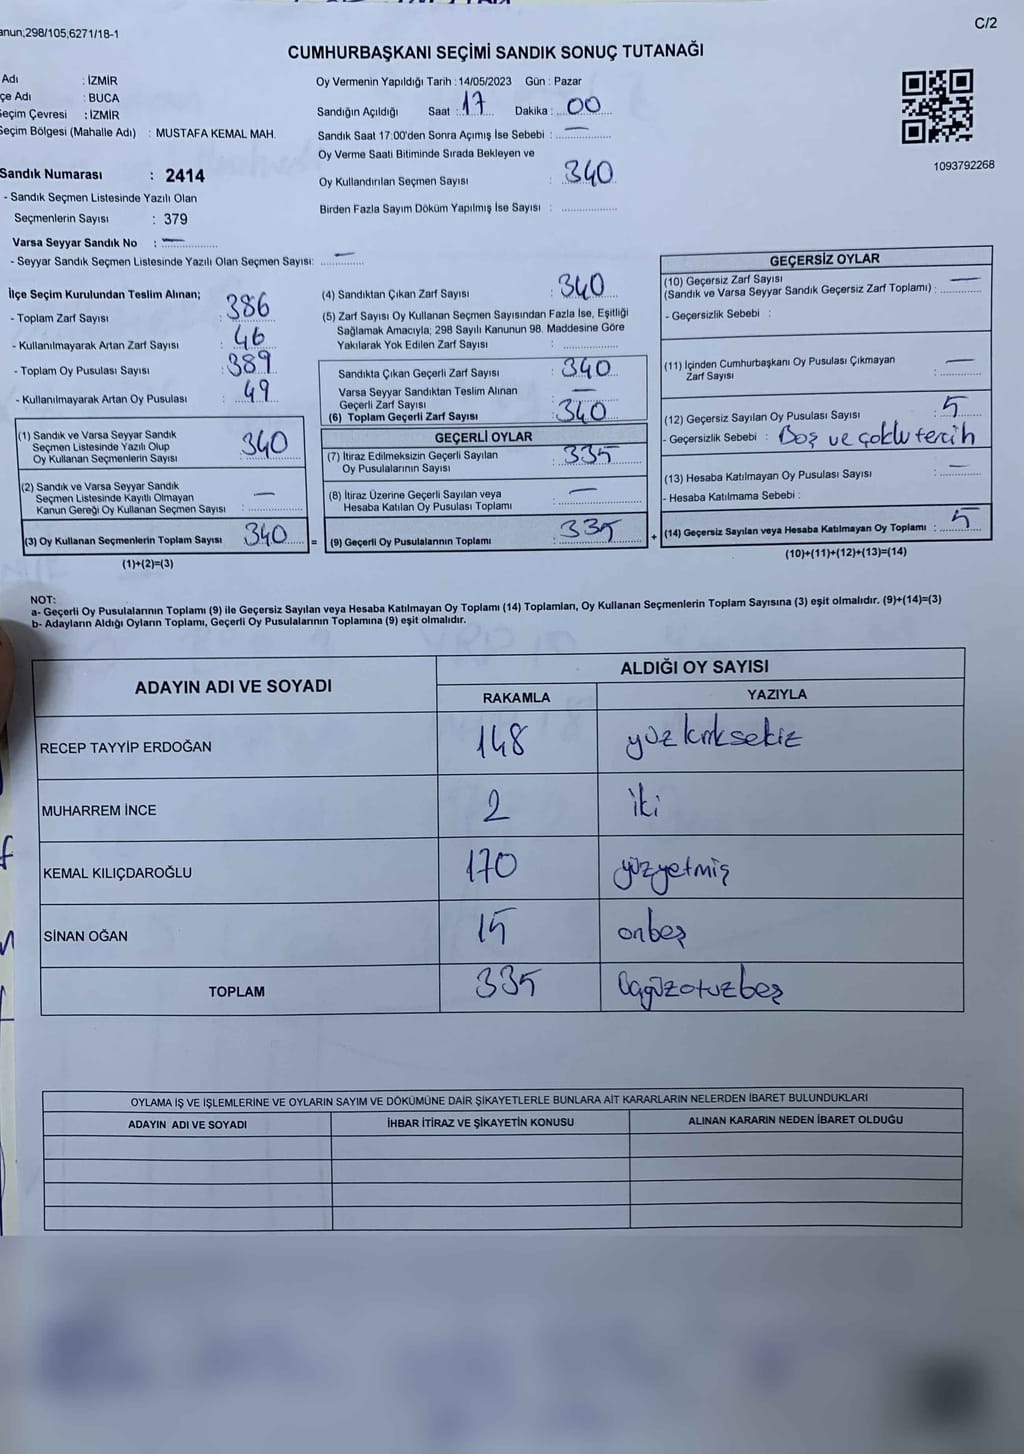 anun;298/105;6271/18-1
C/2
CUMHURBAŞKANI SEÇİMİ SANDIK SONUÇ TUTANAĞI
Adı : İZMİR
çe Adı : BUCA
Seçim Çevresi : İZMİR
Seçim Bölgesi (Mahalle Adı) : MUSTAFA KEMAL MAH.
Sandık Numarası : 2414
- Sandık Seçmen Listesinde Yazılı Olan
Seçmenlerin Sayısı : 379
Varsa Seyyar Sandık No : —
- Seyyar Sandık Seçmen Listesinde Yazılı Olan Seçmen Sayısı: —
Oy Vermenin Yapıldığı Tarih : 14/05/2023 Gün : Pazar
Sandığın Açıldığı Saat : 17 Dakika : 00
Sandık Saat 17:00'den Sonra Açımış İse Sebebi : —
Oy Verme Saati Bitiminde Sırada Bekleyen ve
Oy Kullandırılan Seçmen Sayısı : 340
Birden Fazla Sayım Döküm Yapılmış İse Sayısı :
1093792268
İlçe Seçim Kurulundan Teslim Alınan;
- Toplam Zarf Sayısı : 386
- Kullanılmayarak Artan Zarf Sayısı : 46
- Toplam Oy Pusulası Sayısı : 389
- Kullanılmayarak Artan Oy Pusulası : 49
(1) Sandık ve Varsa Seyyar Sandık
Seçmen Listesinde Yazılı Olup
Oy Kullanan Seçmenlerin Sayısı : 340
(2) Sandık ve Varsa Seyyar Sandık
Seçmen Listesinde Kayıtlı Olmayan
Kanun Gereği Oy Kullanan Seçmen Sayısı : —
(3) Oy Kullanan Seçmenlerin Toplam Sayısı : 340 =
(1)+(2)=(3)
(4) Sandıktan Çıkan Zarf Sayısı : 340
(5) Zarf Sayısı Oy Kullanan Seçmen Sayısından Fazla İse, Eşitliği
Sağlamak Amacıyla; 298 Sayılı Kanunun 98. Maddesine Göre
Yakılarak Yok Edilen Zarf Sayısı :
Sandıkta Çıkan Geçerli Zarf Sayısı : 340
Varsa Seyyar Sandıktan Teslim Alınan
Geçerli Zarf Sayısı : —
(6) Toplam Geçerli Zarf Sayısı : 340
GEÇERLİ OYLAR
(7) İtiraz Edilmeksizin Geçerli Sayılan
Oy Pusulalarının Sayısı : 335
(8) İtiraz Üzerine Geçerli Sayılan veya
Hesaba Katılan Oy Pusulası Toplamı : —
(9) Geçerli Oy Pusulalarının Toplamı : 335 +
GEÇERSİZ OYLAR
(10) Geçersiz Zarf Sayısı
(Sandık ve Varsa Seyyar Sandık Geçersiz Zarf Toplamı) : —
- Geçersizlik Sebebi :
(11) İçinden Cumhurbaşkanı Oy Pusulası Çıkmayan
Zarf Sayısı : —
(12) Geçersiz Sayılan Oy Pusulası Sayısı : 5
- Geçersizlik Sebebi : Boş ve çoklu tercih
(13) Hesaba Katılmayan Oy Pusulası Sayısı : —
- Hesaba Katılmama Sebebi :
(14) Geçersiz Sayılan veya Hesaba Katılmayan Oy Toplamı : 5
(10)+(11)+(12)+(13)=(14)
NOT:
a- Geçerli Oy Pusulalarının Toplamı (9) ile Geçersiz Sayılan veya Hesaba Katılmayan Oy Toplamı (14) Toplamları, Oy Kullanan Seçmenlerin Toplam Sayısına (3) eşit olmalıdır. (9)+(14)=(3)
b- Adayların Aldığı Oyların Toplamı, Geçerli Oy Pusulalarının Toplamına (9) eşit olmalıdır.
ADAYIN ADI VE SOYADI ALDIĞI OY SAYISI
RAKAMLA YAZIYLA
RECEP TAYYİP ERDOĞAN 148 yüz kırksekiz
MUHARREM İNCE 2 iki
KEMAL KILIÇDAROĞLU 170 yüzyetmiş
SİNAN OĞAN 15 onbeş
TOPLAM 335 üçyüzotuzbeş
OYLAMA İŞ VE İŞLEMLERİNE VE OYLARIN SAYIM VE DÖKÜMÜNE DAİR ŞİKAYETLERLE BUNLARA AİT KARARLARIN NELERDEN İBARET BULUNDUKLARI
ADAYIN ADI VE SOYADI İHBAR İTİRAZ VE ŞİKAYETİN KONUSU ALINAN KARARIN NEDEN İBARET OLDUĞU